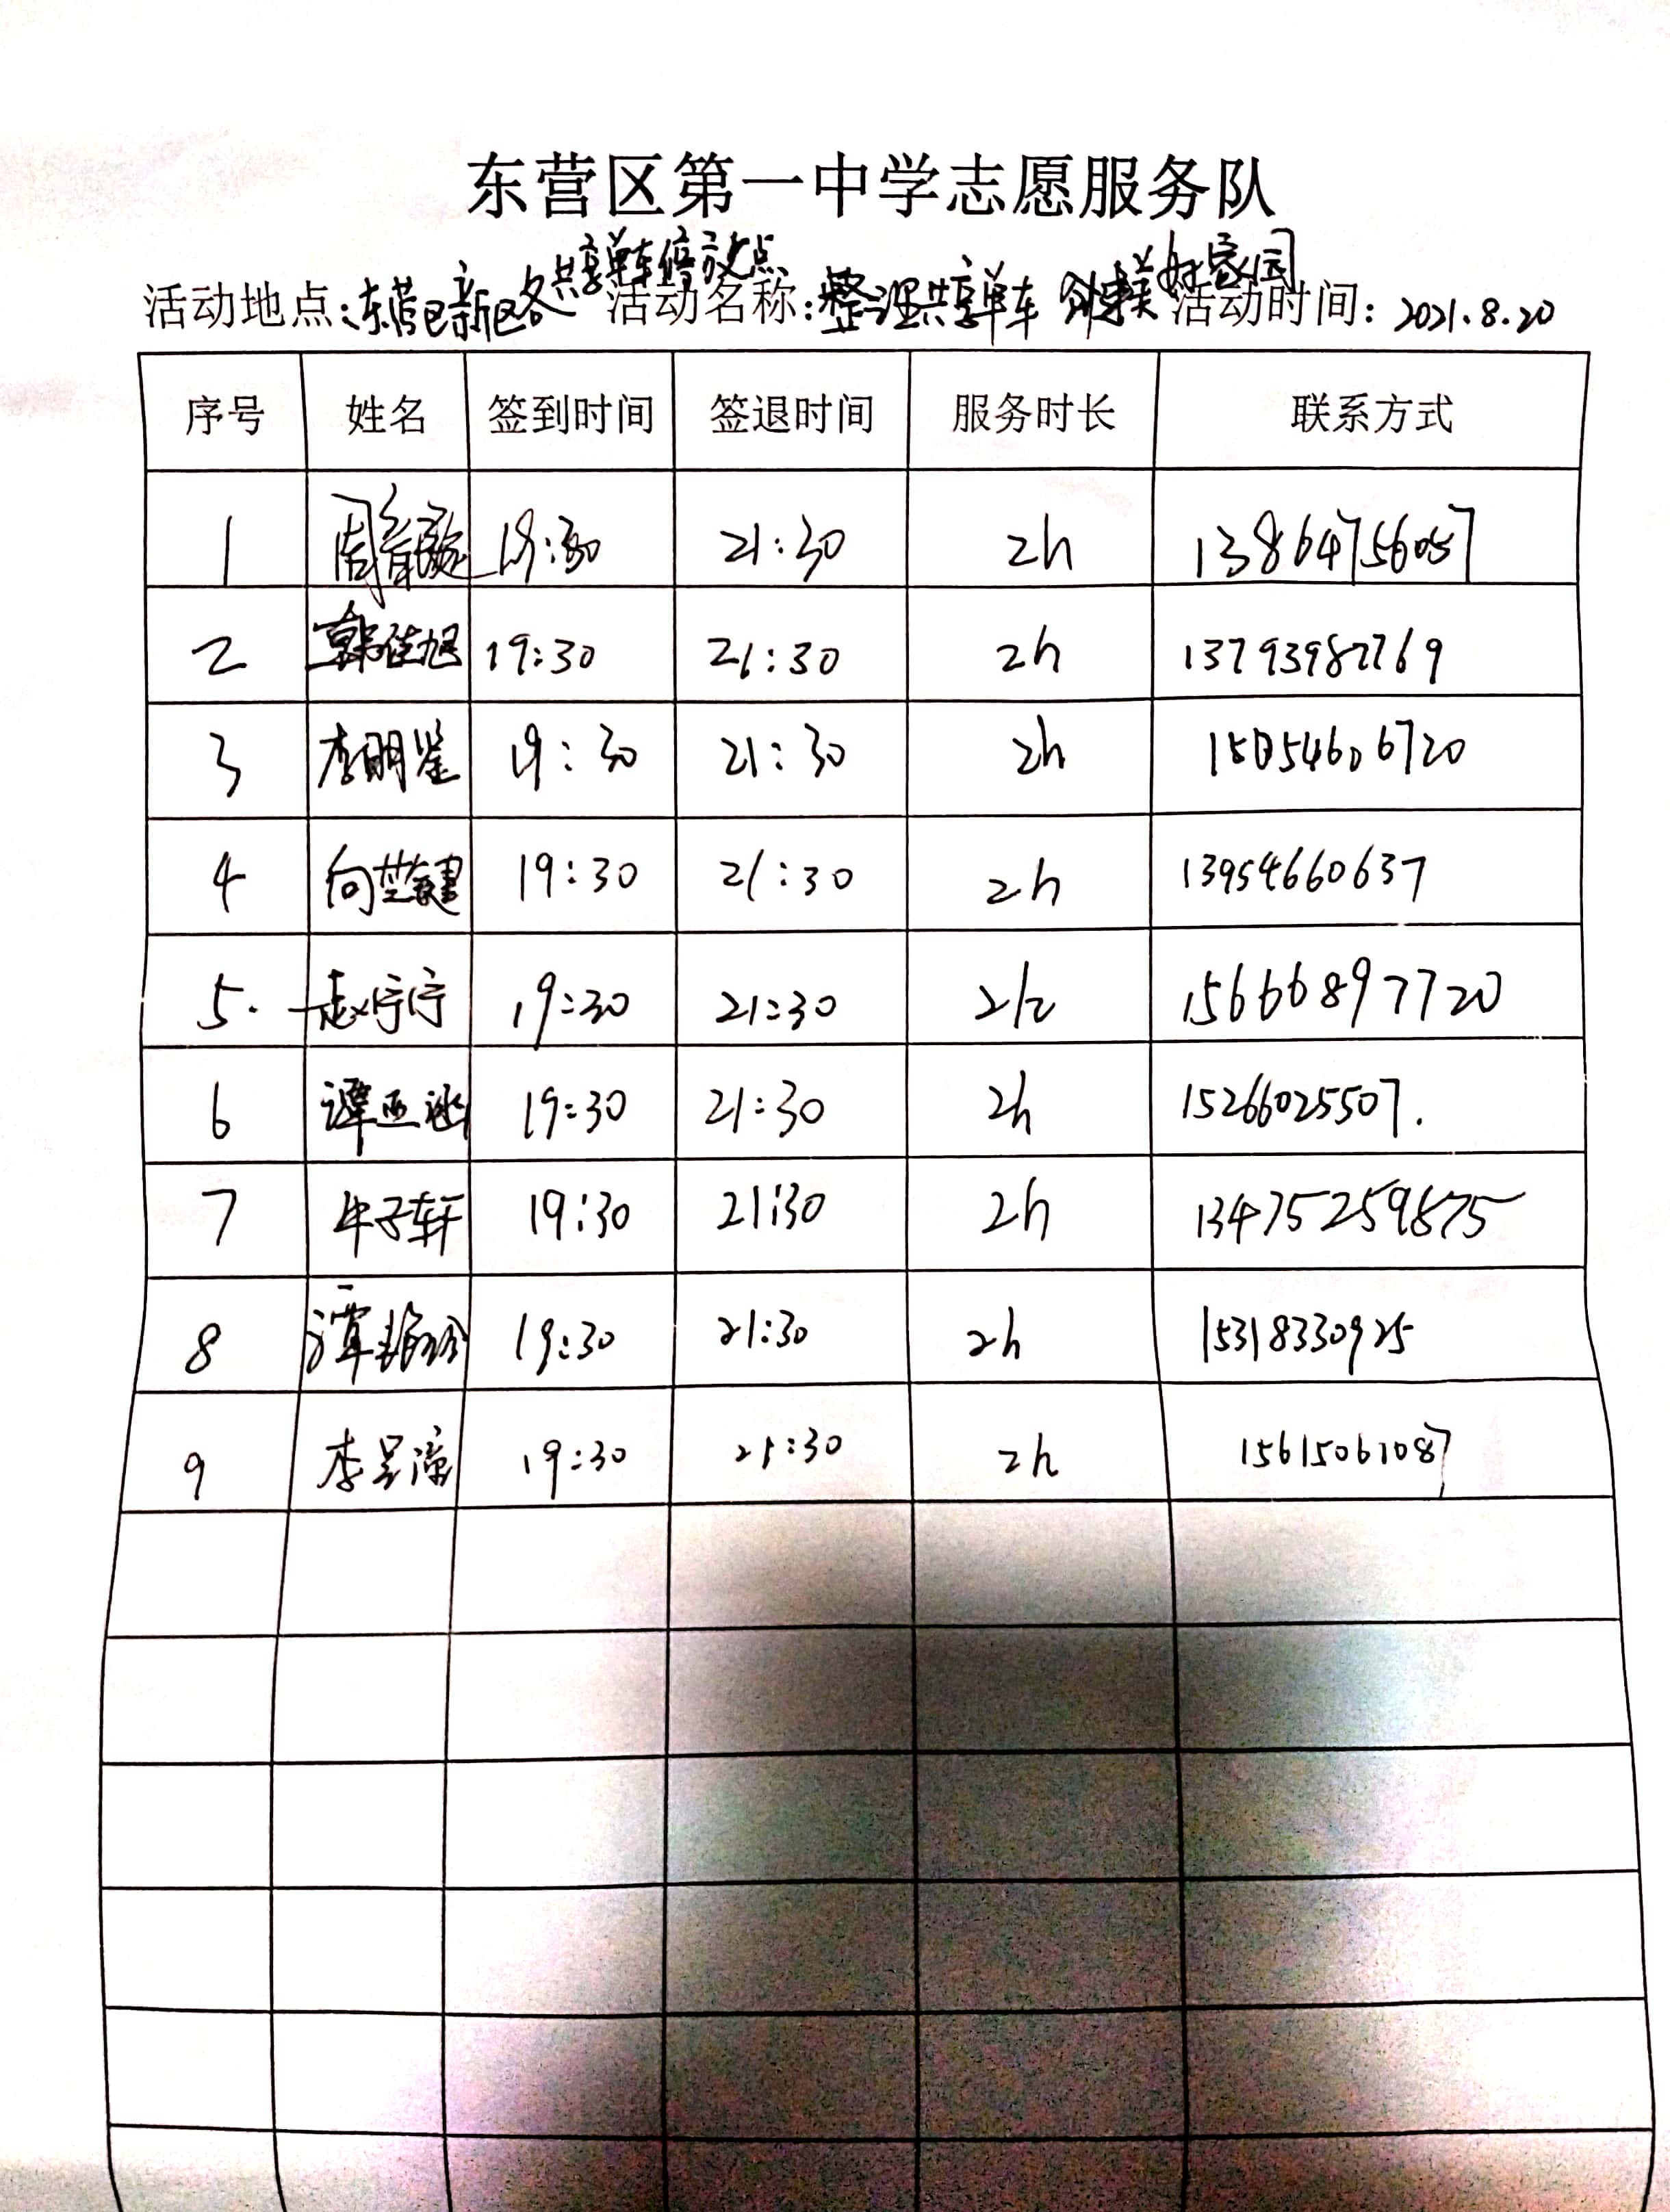 东营区第一中学志愿服务队
活动地点:东营区新区各共享单车停放点 活动名称:整理共享单车 创建美好家园 活动时间:2021.8.20
序号 姓名 签到时间 签退时间 服务时长 联系方式
1 周 19:30 21:30 2h 13864756057
2 郭佳旭 19:30 21:30 2h
3 李明鉴 19:30 21:30 2h
4 向楚健 19:30 21:30 2h 13954660637
5. 赵宁宁 19:30 21:30 2h 15666897720
6 谭亚涵 19:30 21:30 2h 15266025507.
7 牛子轩 19:30 21:30 2h 13475259875
8 谭 19:30 21:30 2h 15318330925
9 李 19:30 21:30 2h 15615061087